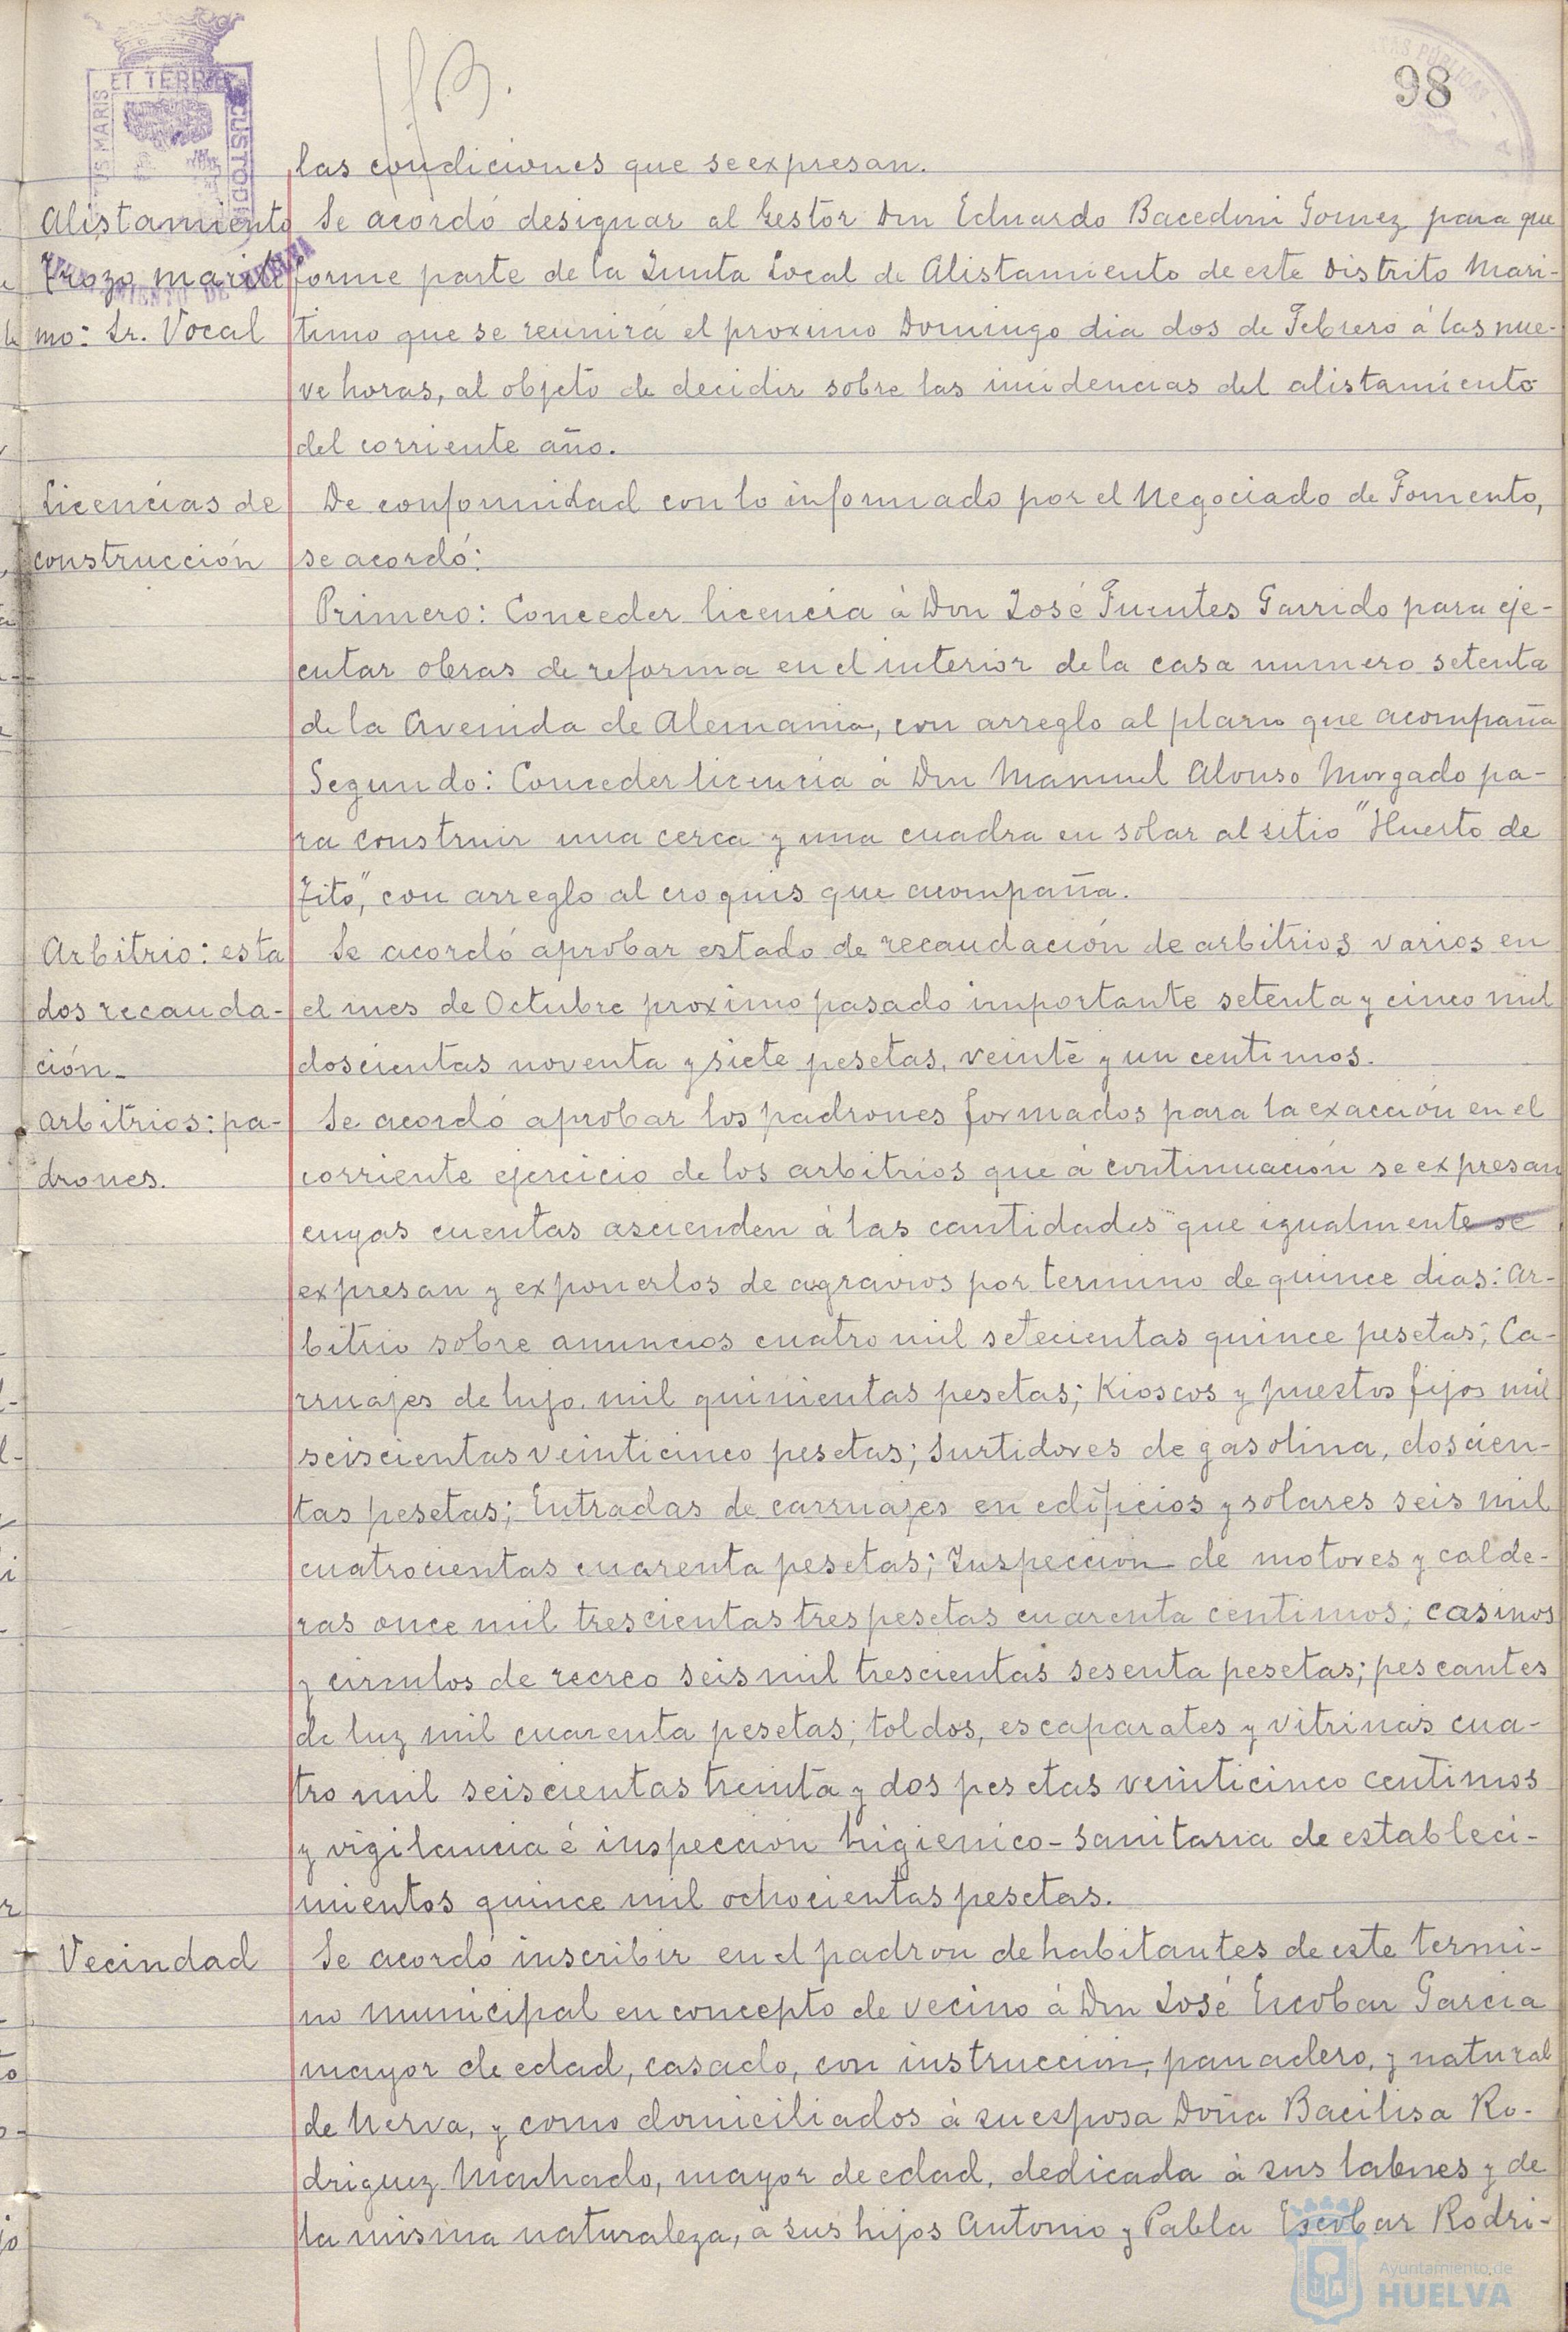 98
las condiciones que se expresan.
Alistamiento
Trozo mariti
mo: Sr. Vocal
Se acordó designar al Gestor Don Eduardo Bacedoni Gomez para que
forme parte de la Junta Local de Alistamiento de este Distrito Mari-
timo que se reunirá el proximo Domingo dia dos de Febrero á las nue-
ve horas, al objeto de decidir sobre las incidencias del alistamiento
del corriente año.
Licencias de
construcción
De conformidad con lo informado por el Negociado de Fomento,
se acordó:
Primero: Conceder licencia á Don José Fuentes Garrido para eje-
cutar obras de reforma en el interior de la casa numero setenta
de la Avenida de Alemania, con arreglo al plano que acompaña
Segundo: Conceder licencia á Don Manuel Alonso Morgado pa-
ra construir una cerca y una cuadra en solar al sitio "Huerto de
Tito", con arreglo al croquis que acompaña.
Arbitrio: esta
dos recauda-
ción.
Se acordó aprobar estado de recaudación de arbitrios varios en
el mes de Octubre proximo pasado importante setenta y cinco mil
doscientas noventa y siete pesetas, veinte y un centimos.
Arbitrios: pa-
drones.
Se acordó aprobar los padrones formados para la exacción en el
corriente ejercicio de los arbitrios que á continuación se expresan
cuyas cuentas ascienden á las cantidades que igualmente se
expresan y exponerlos de agravios por termino de quince dias: Ar-
bitrio sobre anuncios cuatro mil setecientas quince pesetas; Ca-
rruajes de lujo, mil quinientas pesetas; Kioscos y puestos fijos mil
seiscientas veinticinco pesetas; Surtidores de gasolina, doscien-
tas pesetas; Entradas de carruajes en edificios y solares seis mil
cuatrocientas cuarenta pesetas; Inspeccion de motores y calde-
ras once mil trescientas tres pesetas cuarenta centimos; casinos
y circulos de recreo seis mil trescientas sesenta pesetas; pescantes
de luz mil cuarenta pesetas; toldos, escaparates y vitrinas cua-
tro mil seiscientas treinta y dos pesetas veinticinco centimos
y vigilancia é inspeccion higienico-sanitaria de estableci-
mientos quince mil ochocientas pesetas.
Vecindad
Se acordó inscribir en el padron de habitantes de este termi-
no municipal en concepto de vecino á Don José Escobar Garcia
mayor de edad, casado, con instruccion, panadero, y natural
de Nerva, y como domiciliados á su esposa Doña Bacilisa Ro-
driguez Machado, mayor de edad, dedicada á sus labores y de
la misma naturaleza, á sus hijos Antonio y Pabla Escobar Rodri-
Ayuntamiento de
HUELVA